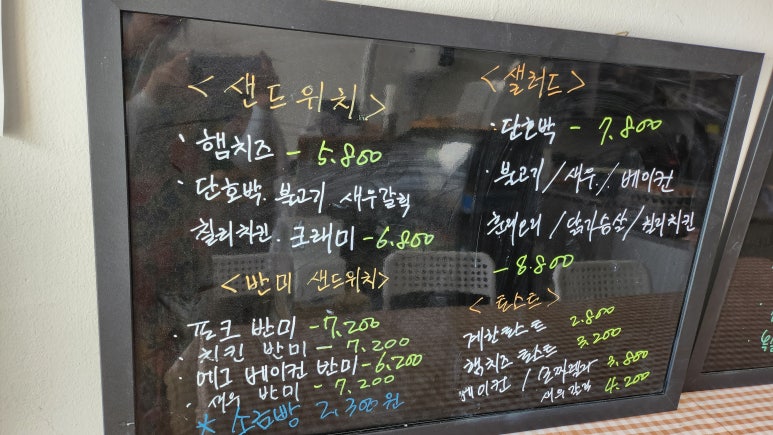 <샌드위치>
· 햄치즈 - 5.800
· 단호박. 불고기 새우갈릭
칠리치킨. 크래미 - 6.800
<반미 샌드위치>
· 포크 반미 - 7.200
· 치킨 반미 - 7.200
· 에그 베이컨 반미 - 6.200
· 새우 반미 - 7.200
* 소금빵 2.300원
<샐러드>
· 단호박 - 7.800
· 불고기 / 새우 / 베이컨
훈제오리 / 닭가슴살 / 칠리치킨
- 8.800
<토스트>
계란토스트 2.800
햄치즈 토스트 3.200
베이컨 / 모짜렐라 3.800
새우갈릭 4.200